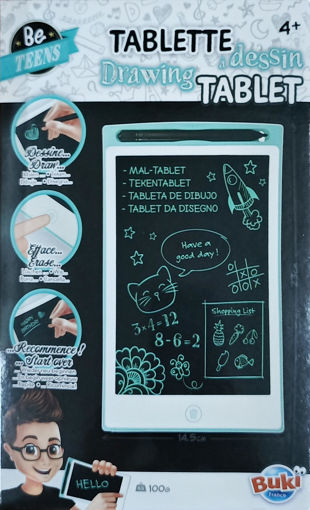 Be
TEENS
4+
TABLETTE
à dessin
Drawing
TABLET
Dessine...
Draw...
- MAL-TABLET
- TEKENTABLET
- TABLETA DE DIBUJO
- TABLET DA DISEGNO
Have a
good day!
Efface...
Erase...
3×4=12
8-6=2
Shopping List
...Recommence !
... Start over
14.5cm
HELLO
100g
Buki
France